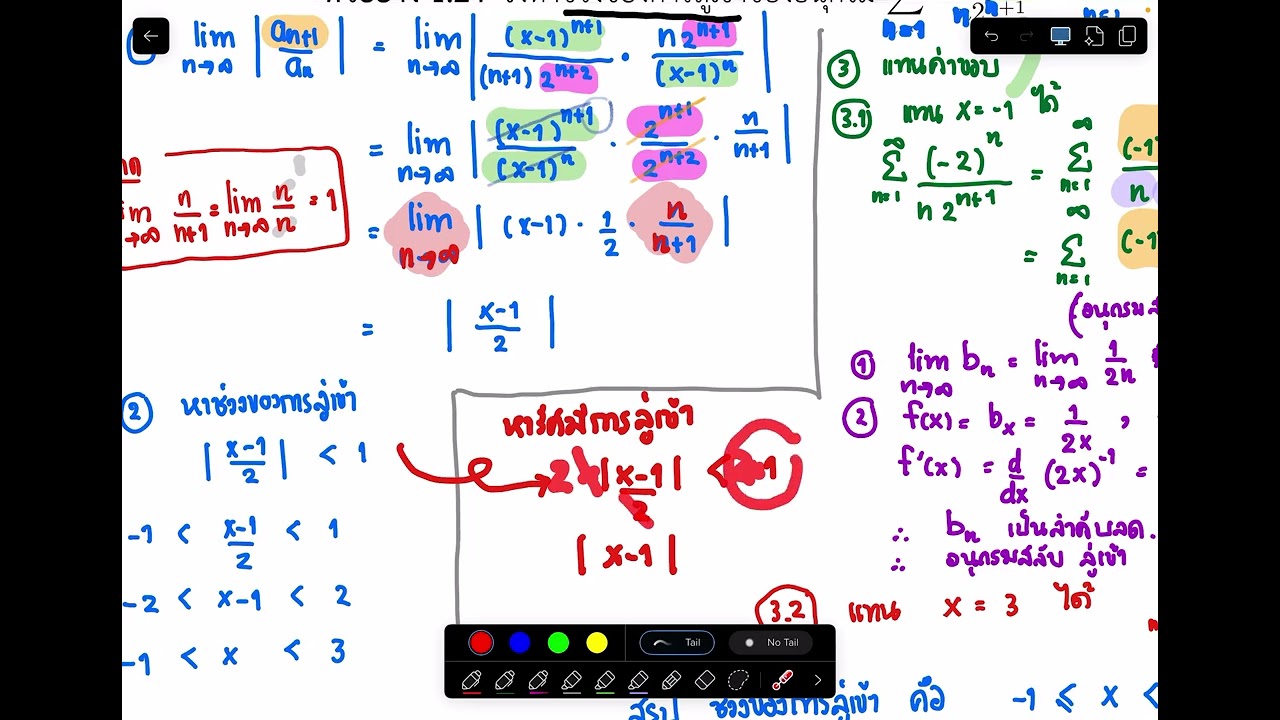 lim n→∞ | an+1 / an | = lim n→∞ | (x-1)^{n+1} / (n+1) 2^{n+2} · n 2^{n+1} / (x-1)^n |
= lim n→∞ | (x-1)^{n+1} / (x-1)^n · 2^{n+1} / 2^{n+2} · n / n+1 |
n / n+1 = lim n→∞ n / n = 1
= lim n→∞ | (x-1) · 1/2 · n / n+1 |
= | x-1 / 2 |
② หาช่วงของการลู่เข้า
| x-1 / 2 | < 1
-1 < x-1 / 2 < 1
-2 < x-1 < 2
-1 < x < 3
หารัศมีการลู่เข้า
2 × | x-1 / 2 | < 1
| x-1 |
③ แทนค่าขอบ
3.1 แทน x = -1 ได้
∞ Σ n=1 (-2)^n / n 2^{n+1} = ∞ Σ n=1 (-1) / n
= ∞ Σ n=1 (-1)
① lim n→∞ bn = lim n→∞ 1 / 2n
② f(x) = bx = 1 / 2x ,
f'(x) = d/dx (2x)^{-1} =
∴ bn เป็นลำดับลด.
∴ อนุกรมสลับ ลู่เข้า
3.2 แทน x = 3 ได้
Tail No Tail
สรุป ช่วงของการลู่เข้า คือ -1 ≤ x <